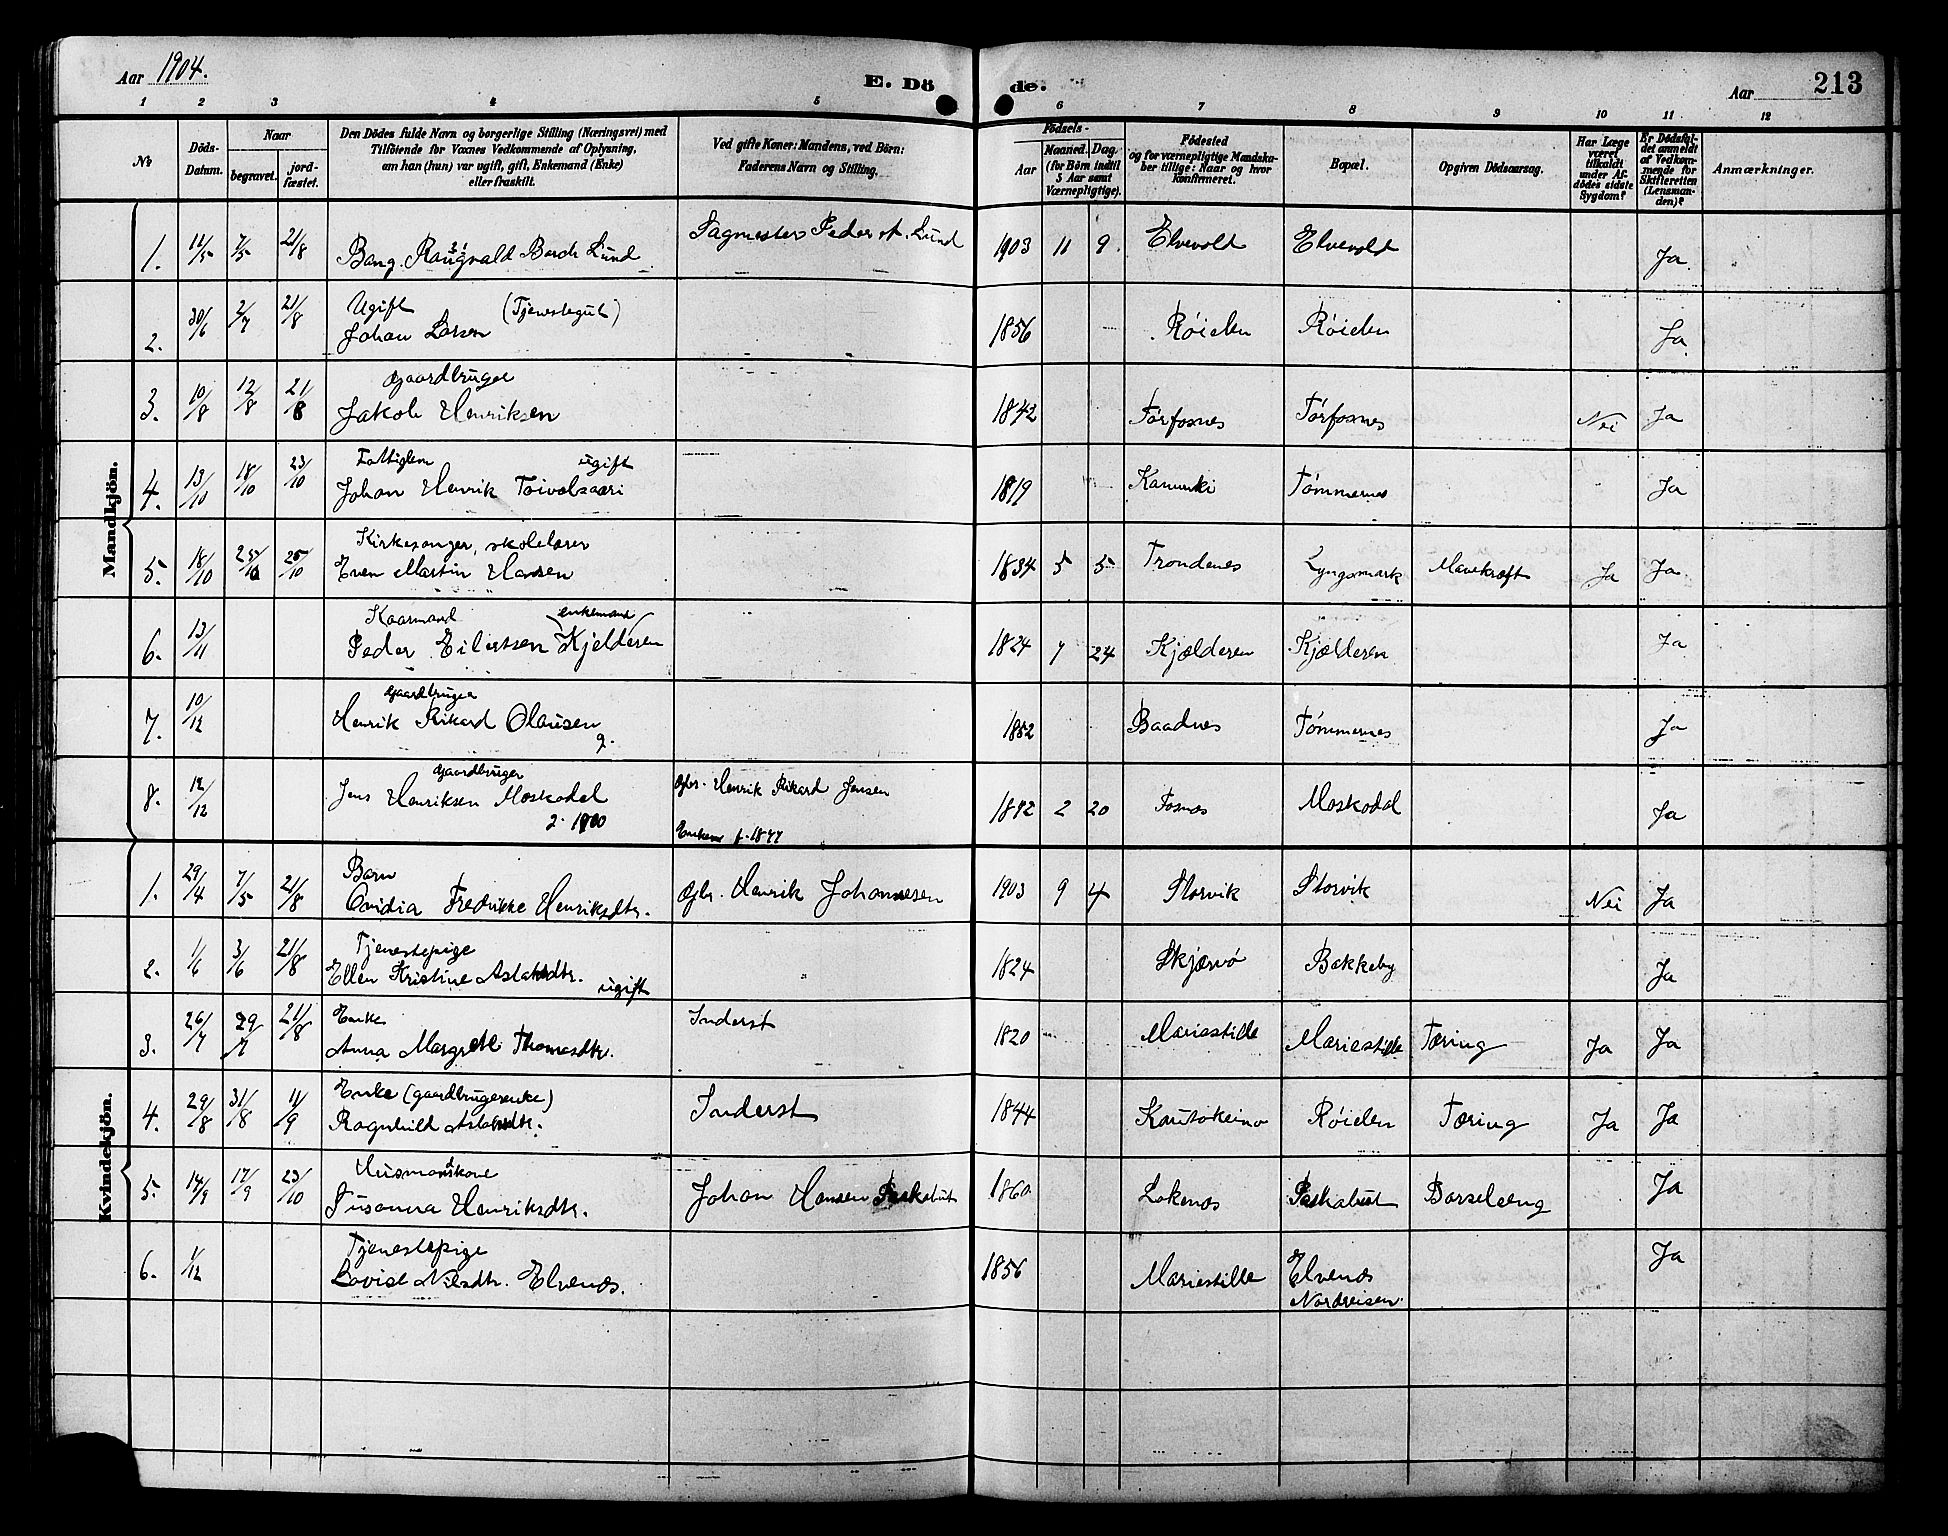 Aar 1904.
E. Dö
de.
Aar
213
1 2 3 4 5 6 7 8 9 10 11 12
No
Döds-
Datum.
Naar
begravet.
jord-
fæstet.
Den Dödes fulde Navn og borgerlige Stilling (Næringsvei) med
Tilföiende for Voxnes Vedkommende af Oplysning,
om han (hun) var ugift, gift, Enkemand (Enke)
eller fraskilt.
Ved gifte Koner: Mandens, ved Börn:
Faderens Navn og Stilling.
Födsels-
Aar
Maaned.
Dag.
(for Börn indtil
5 Aar samt
Værnepligtige).
Födested
og for værnepligtige Mandska-
ber tillige: Naar og hvor
konfirmeret.
Bopæl.
Opgiven Dödsaarsag.
Har Læge
været
tilkaldt
under Af-
dödes sidste
Sygdom?
Er Dödsfal-
det anmeldt
af Vedkom-
mende for
Skifteretten
(Lensman-
den)?
Anmærkninger.
Mandkjön.
1. 7/5 21/8 Lund Peder Lund 1903 11 9. Elvevold Elvevold Ja.
Ugift (Tjenestegut)
2. 30/6 2/7 21/8 Johan Larsen 1856 Röielen Röielen Ja.
Gaardbruger
3. 10/8 12/8 21/8 Jakob Henriksen 1842 Nei Ja
ugift
4. 13/10 18/10 23/10 Johan Henrik 18 Tömmernes Ja
Kirkesanger, skolelærer
5. 18/10 25/10 25/10 Even Martin Hansen 1834 5 5 Trondenes Lyngsmark Mavekræft Ja Ja
Kaarmand enkemand
6. 13/11 Peder Eilertsen Kjelderen 1824 7 24 Kjælderen Kjælderen Ja
Gaardbruger
7. 10/12 Henrik Rikard Olausen 1852 Baadnes Tömmernes Ja
Gaardbruger
8. 12/12 Jens Henriksen Moskodal Gbr. Henrik Rikard Jensen 2 20 Moskodal Ja
Kvindekjön.
Barn
1. 29/4 7/5 21/8 Ovidia Fredrikke Henriksdtr. Gbr. Henrik Johannesen 1903 9 4 Storvik Storvik Nei Ja
Tjenestepige
2. 1/6 3/6 21/8 Ellen Kristine Aslaksdtr. ugift 1824 Skjærvö Bakkeby Ja
Enke
3. 26/7 29/7 21/8 Anna Margrete Thomasdtr. Inderst 1820 Mariestille Mariestille Tæring Ja Ja
Enke (gaardbrugerenke)
4. 29/8 31/8 11/9 Ragnhild Aslaksdtr. Inderst 1844 Kautokeino Röielen Tæring Ja Ja
Husmandskone
5. 14/9 17/9 23/10 Susanna Henriksdtr. Johan Hansen 1860 Barselseng Ja
Tjenestepige
6. 1/12 Lovise Nilsdtr. Elvenes. 1856 Mariestille Elvenes Ja
Nordreisen.